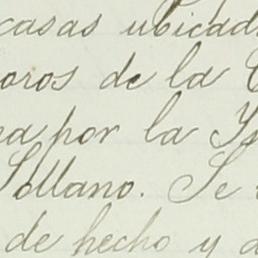 casas ubicad
oros de la
a por la
Sollano. Se
de hecho y a